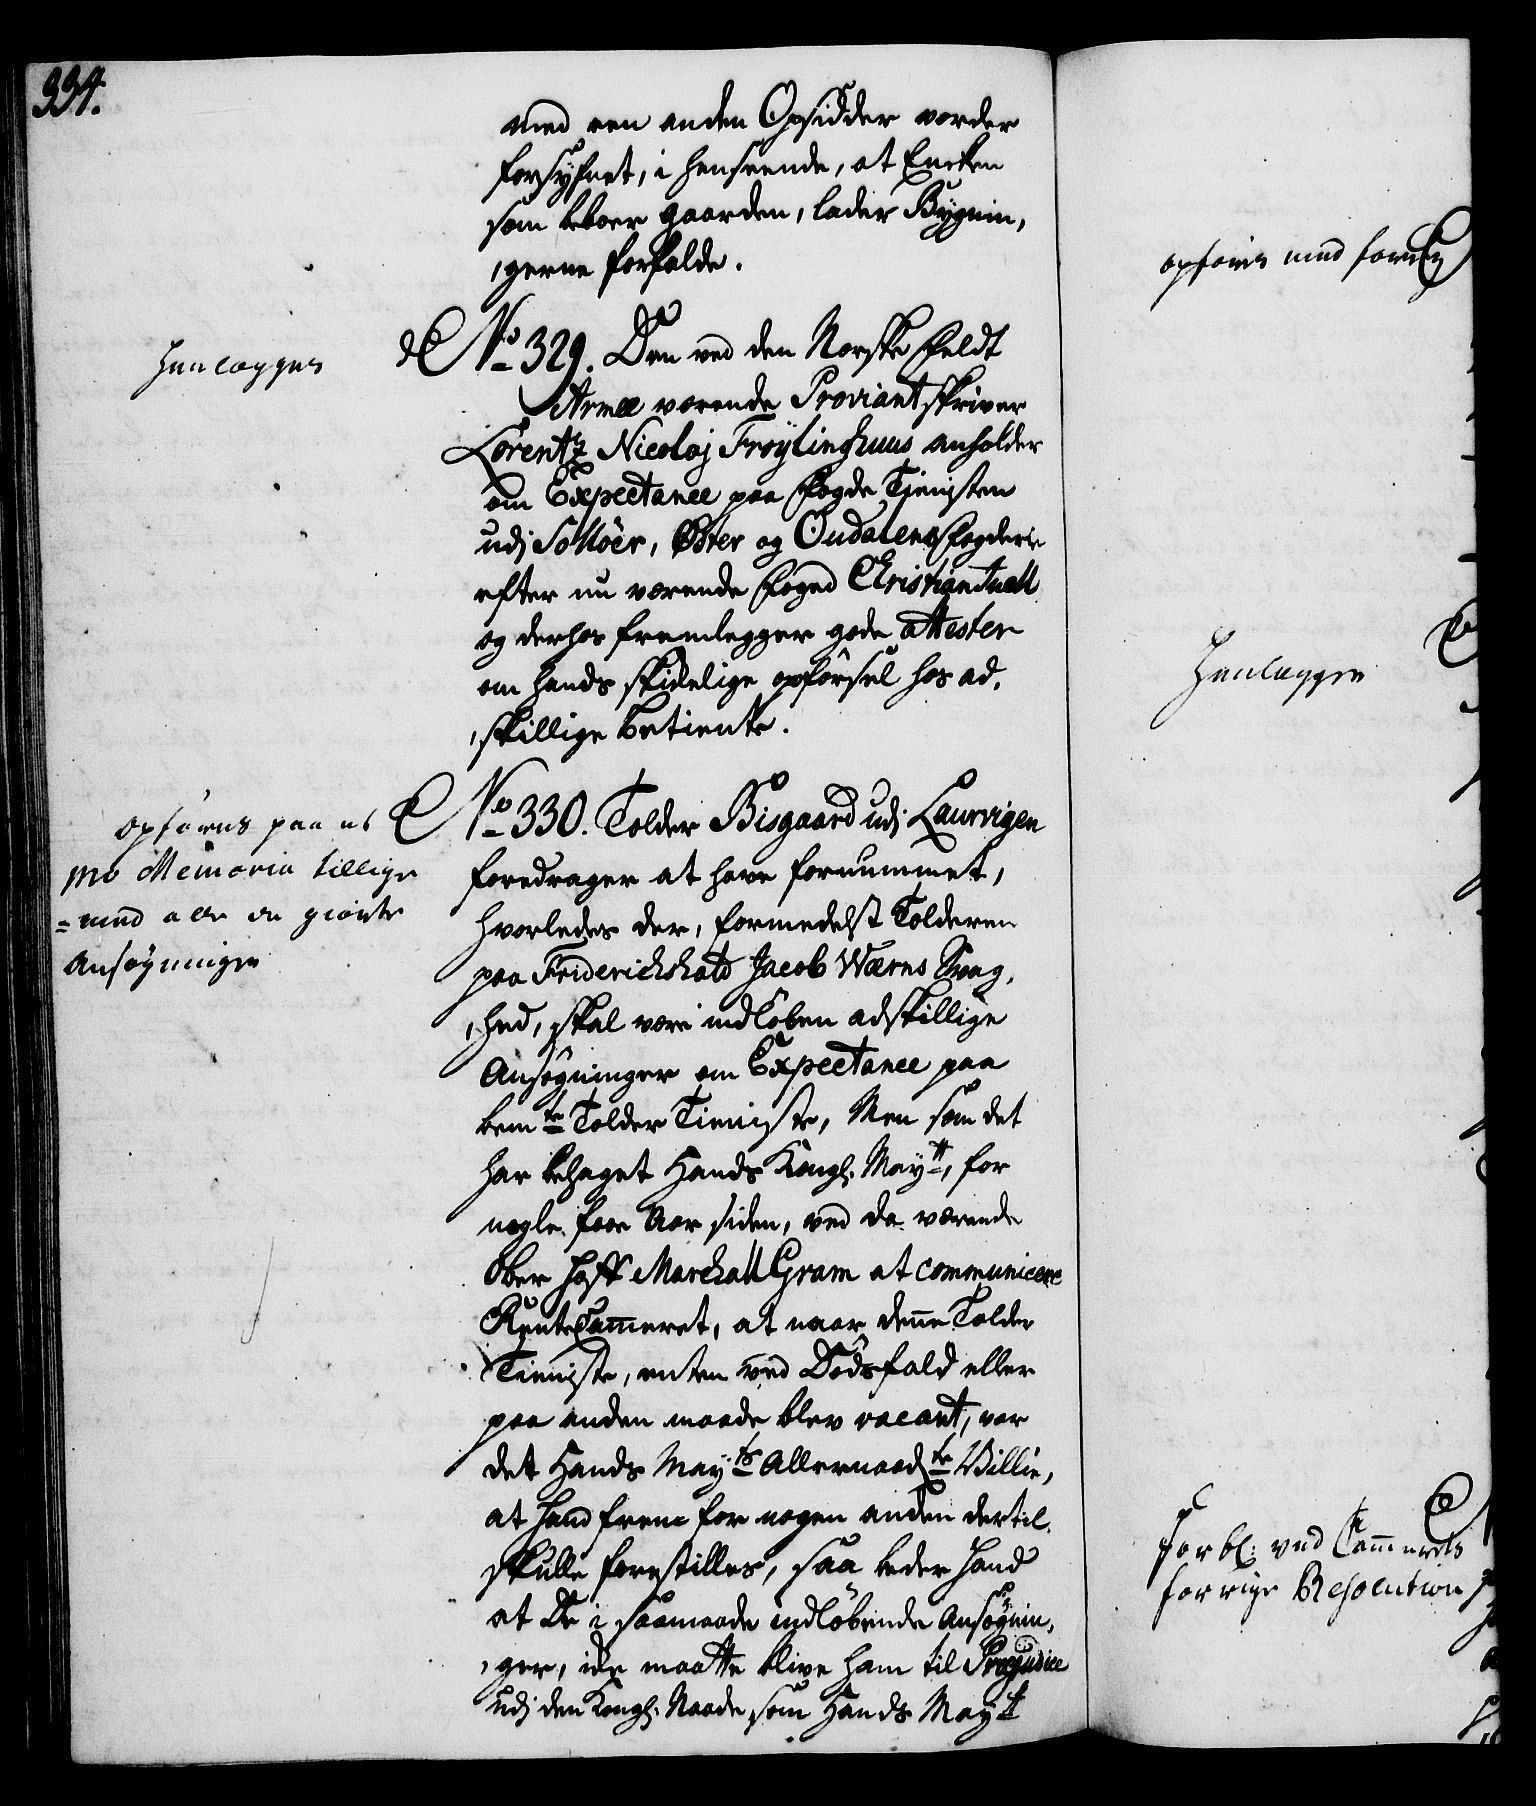 334.
med een anden Opsidder vorder
forsyfnet, i henseende, at Encken
som beboer gaarden, lader Bygnin,
,gerne forfalde.
Henlægges
No 329. Den ved den Norske Feldt
Armee værende Proviantskriver
Lorentz Nicolaj Frøylinghuus anholder
om Expectance paa Fogde Tienisten
udj Solløer, Øster og Oudalens Fogderie
efter nu værende Foged Christian Juell
og derhos fremlegger gode attester
om hands skikelige opførsel hos ad,
,skillige betiente.
opføres paa et
pro Memoria tillige
=med alle de giorte
Ansøgninger
No 330. Tolder Bisgaard udj Laurvigen
foredrager at have fornummet,
hvorledes der, formedelst Tolderen
paa Friderichshald Jacob Wærns Svag,
,hed, skal være indløben adskillige
Ansøgninger om Expectance paa
bemte Tolder Tieniste, Men som det
har behaget Hands Kongl. Maytt, for
nogle faae Aar siden, ved da værende
Ober Hoff Marchall Gram at communicere
Rente Cameret, at naar denne Tolder
Tieniste, enten ved Dødsfald eller
paa anden maade blev vacant, var
det Hands Mayts Allernaadte Villie,
at hand frem for nogen anden dertil
skulle forestilles, saa beder hand
at De i saamaade indløbende Ansøgnin,
,ger, icke maatte blive ham til Præjudice
udj den Kongl. Naade, som Hands Maytt
opføres med
Henlægges
forbl. ved Cammerets
forrige Resolution